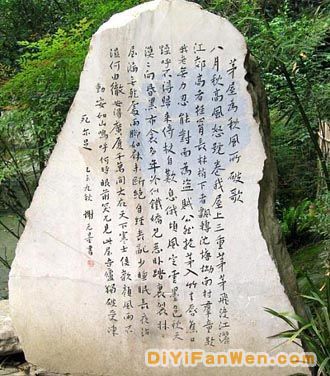 茅屋為秋風所破歌
八月秋高風怒號卷我屋上三重茅茅飛渡江灑
江郊高者挂罥長林梢下者飄轉沈塘坳南村群童欺
我老無力忍能對面為盜賊公然抱茅入竹去唇焦口
燥呼不得歸來倚杖自歎息俄頃風定雲墨色秋天
漠漠向昏黑布衾多年冷似鐵嬌兒惡卧踏裏裂牀
屋漏無乾處雨脚如麻未斷絕自經喪亂少睡眠長夜沾
濕何由徹安得廣厦千万間大庇天下寒士俱歡顏風雨不
動安如山嗚呼何時眼前突兀見此屋吾廬獨破受凍
死亦足 九秋 謝无量書
DiYiFanWen.com